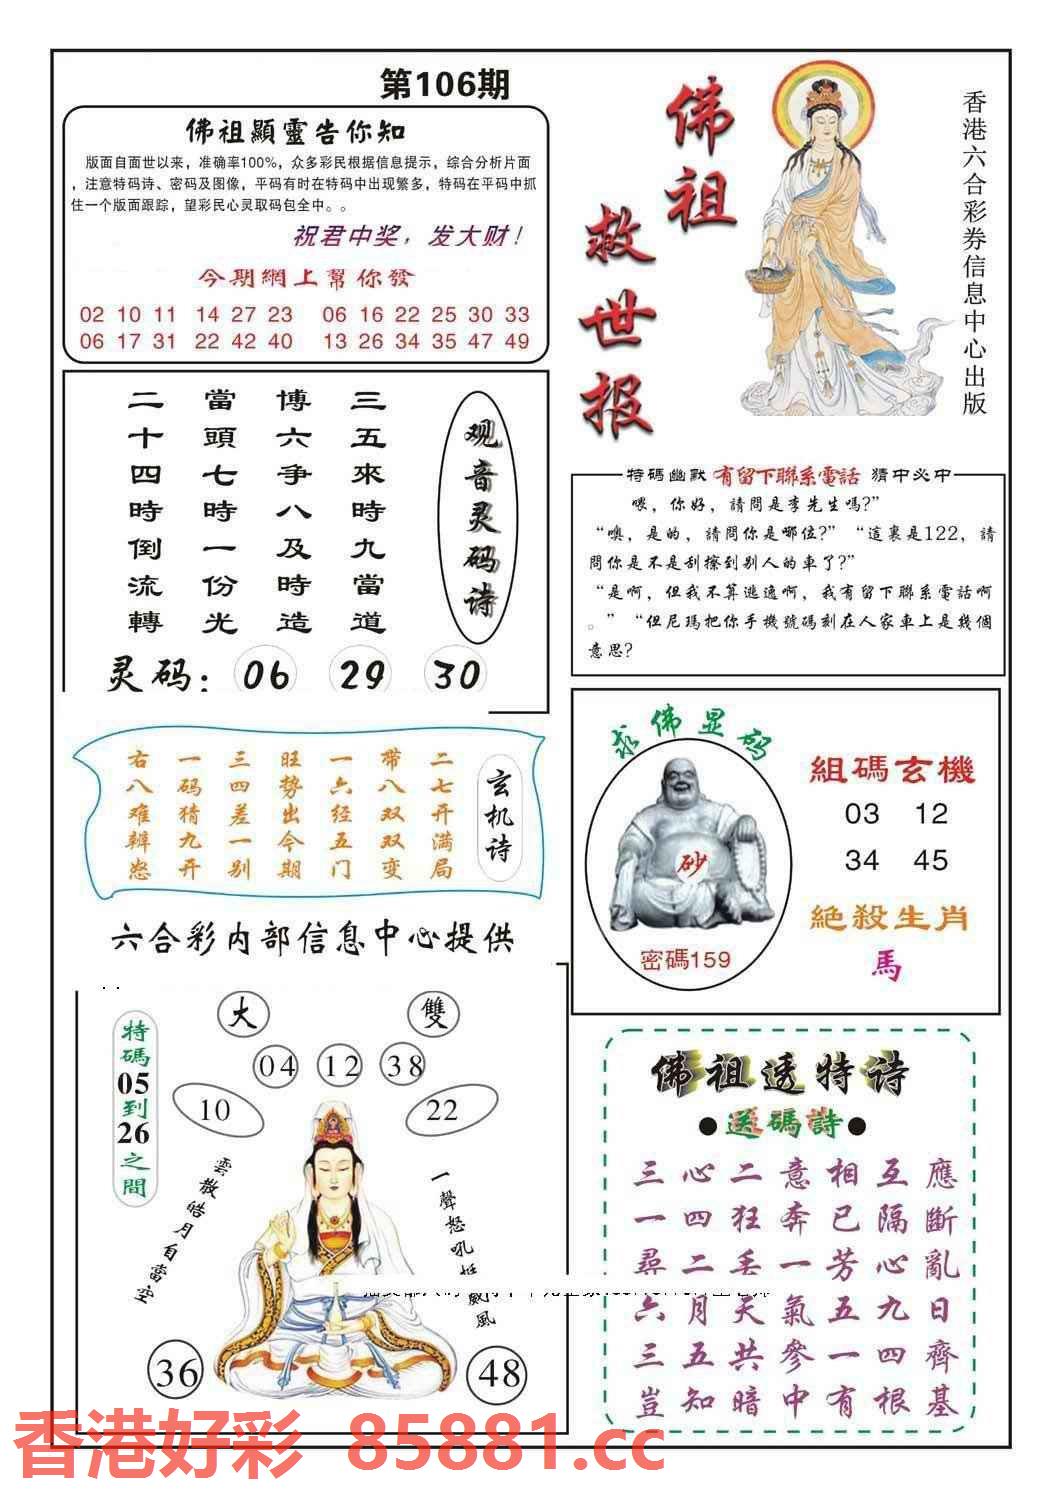 第106期
佛祖顯靈告你知
版面自面世以来，准确率100%，众多彩民根据信息提示，综合分析片面
，注意特码诗、密码及图像，平码有时在特码中出现繁多，特码在平码中抓
住一个版面跟踪，望彩民心灵取码包全中。。
祝君中奖，发大财！
今期網上幫你發
02 10 11 14 27 23 06 16 22 25 30 33
06 17 31 22 42 40 13 26 34 35 47 49
佛祖
救世报
香港六合彩券信息中心出版
观音灵码诗
三五來時九當道
博六爭八及時造
當頭七時一份光
二十四時倒流轉
灵码：06 29 30
特碼幽默 有留下聯系電話 猜中必中
喂，你好，請問是李先生嗎?”
“噢，是的，請問你是哪位?” “這裏是122，請
問你是不是刮擦到别人的車了?”
“是啊，但我不算逃逸啊，我有留下聯系電話啊
。” “但尼瑪把你手機號碼刻在人家車上是幾個
意思?
玄机诗
二七开满局
带八双双变
一六经五门
旺势出今期
三四差一别
一码猜九开
右八难辨愁
六合彩内部信息中心提供
求佛显码
砂
密碼159
組碼玄機
03 12
34 45
絕殺生肖
馬
大 雙
04 12 38
10 22
特碼05到26之間
雲散皓月自當空
一聲怒吼 威風
36 48
佛祖透特诗
●送碼詩●
三心二意相互應
一四狂奔已隔斷
尋二丢一芳心亂
六月天氣五九日
三五共參一四齊
豈知暗中有根基
香港好彩 85881.cc